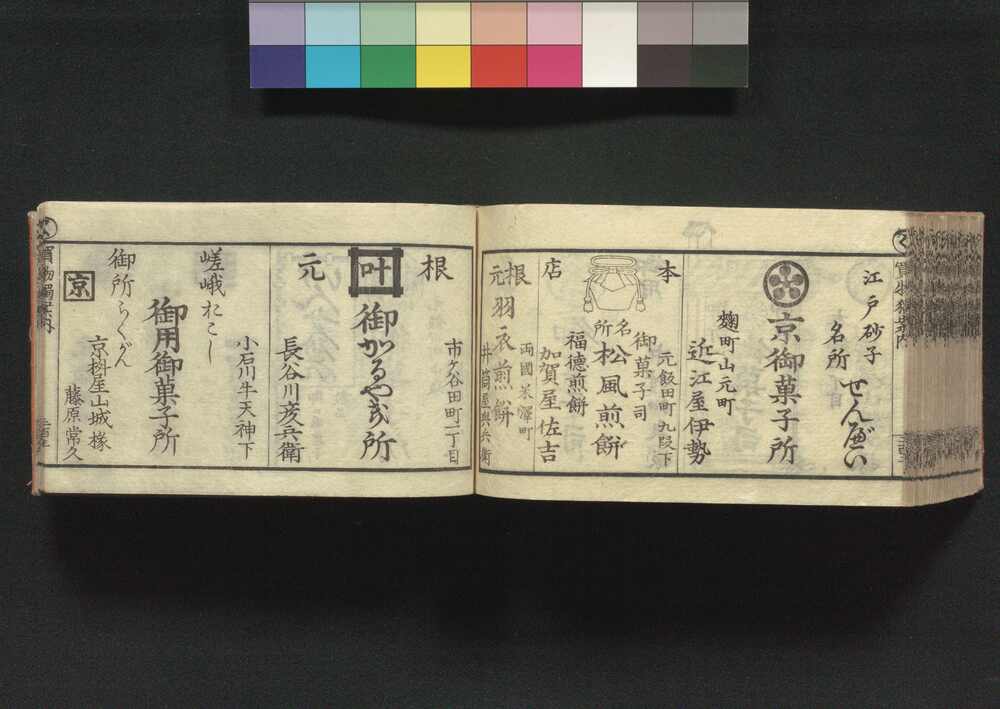 く
江戸砂子
名所
せんべい
京御菓子所
麹町山元町
近江屋伊勢
本
元飯田町九段下
御菓子司
名所
松風煎餅
福徳煎餅
店
加賀屋佐吉
両國米澤町
根元
羽衣煎餅
井筒屋與兵衛
根
市ケ谷田町一丁目
叶
御かるやき所
元
長谷川彦兵衛
小石川牛天神下
嵯峨おこし
御用御菓子所
御所らくがん
京
京樹星山城掾
藤原常久